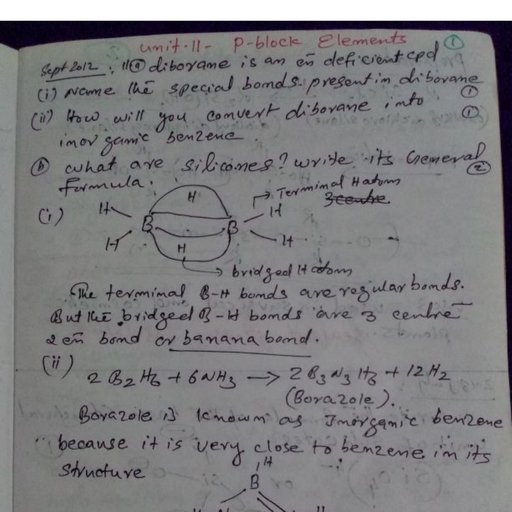 unit-11- P-block Elements ①
Sept 2012 : 11 ⓐ diborane is an en deficient cpd
(i) Name the special bonds present in diborane ①
(ii) How will you convert diborane into ①
inorganic benzene
ⓑ what are silicones? write its General ②
formula.
(i) H H → Terminal H atom
3centre
H
B B
H H H
→ bridged H atom
The terminal B-H bonds are regular bonds.
But the bridged B-H bonds are 3 centre
2 en bond or banana bond.
(ii)
2 B2H6 + 6NH3 → 2B3N3H6 + 12H2
(Borazole).
Borazole is known as Inorganic benzene
because it is very close to benzene in its
structure
H
B